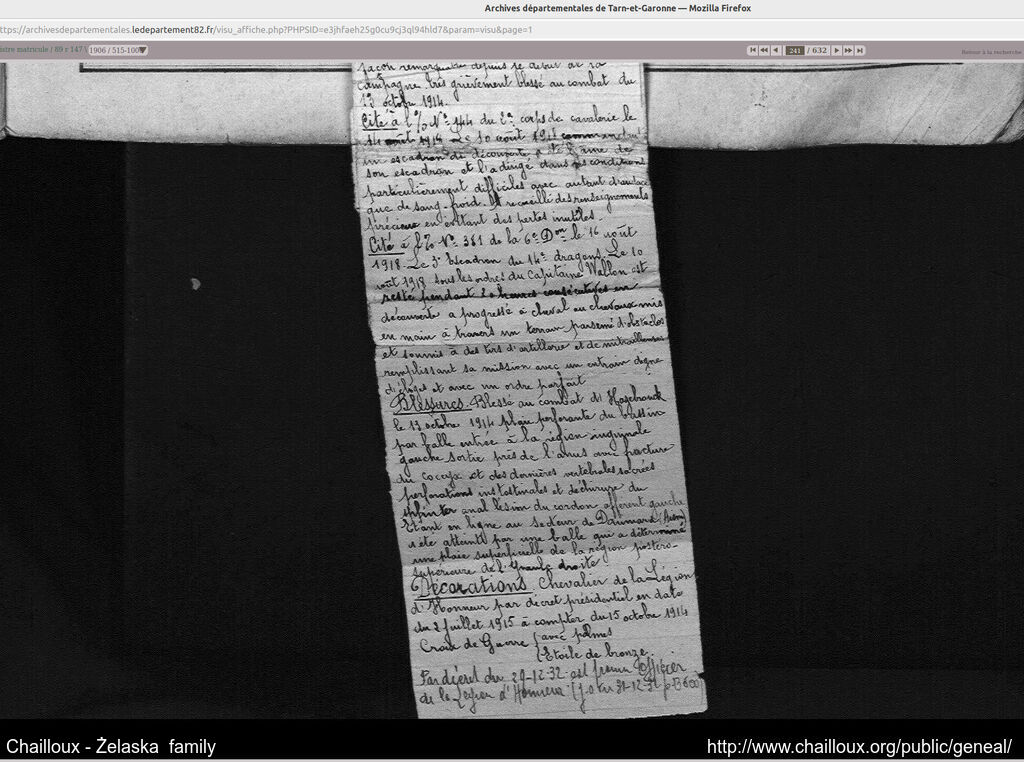 Archives départementales de Tarn-et-Garonne — Mozilla Firefox
https://archivesdepartementales.ledepartement82.fr/visu_affiche.php?PHPSID=e3jhfaeh25g0cu9cj3ql94hld7&param=visu&page=1
istre matricule / 89 r 147 \ 1906 / 515-100
241 / 632
Retour à la recherche
façon remarquable depuis le début de la
campagne très grièvement blessé au combat du
13 octobre 1914.
Cité à l'% N° 144 du 2e corps de cavalerie le
14 août Le 10 août
un escadron de découverte,
son escadron et l'a dirigé dans des conditions
particulièrement difficiles avec autant d'audace
que de sang-froid. recueilli des renseignements
précieux en évitant des pertes inutiles.
Cité à l'% N° 381 de la 6e Don le 16 août
1918. Le 3e Escadron du 14e dragons. Le 10
août 1918 sous les ordres du Capitaine Wallon est
resté pendant 20 heures consécutives en
découverte a progressé à cheval ou chevaux mis
en main à travers un terrain parsemé d'obstacles
et soumis à des tirs d'artillerie et de mitrailleuses
remplissant sa mission avec un entrain digne
d'éloges et avec un ordre parfait
Blessures Blessé au combat d'Hazebrouck
le 13 octobre 1914 plaie perforante du bassin
par balle entrée à la région inguinale
gauche sortie près de l'anus avec fracture
du coccyx et des dernières vertèbrales sacrées
perforations instestinales et déchirure du
sphinter anal lésion du cordon afférent gauche
Etant en ligne au secteur de
a été atteint par une balle qui a déterminé
une plaie superficielle de la région postéro-
supérieure de l'épaule droite
Décorations Chevalier de la Légion
d'Honneur par décret présidentiel en date
du 2 juillet 1915 à compter du 15 octobre 1914
Croix de Guerre { avec palmes
{ Etoile de bronze.
Par décret du 29-12-32 est promu Officier
de la Légion d'Honneur (J.O du 31-12-32
Chailloux - Żelaska family
http://www.chailloux.org/public/geneal/